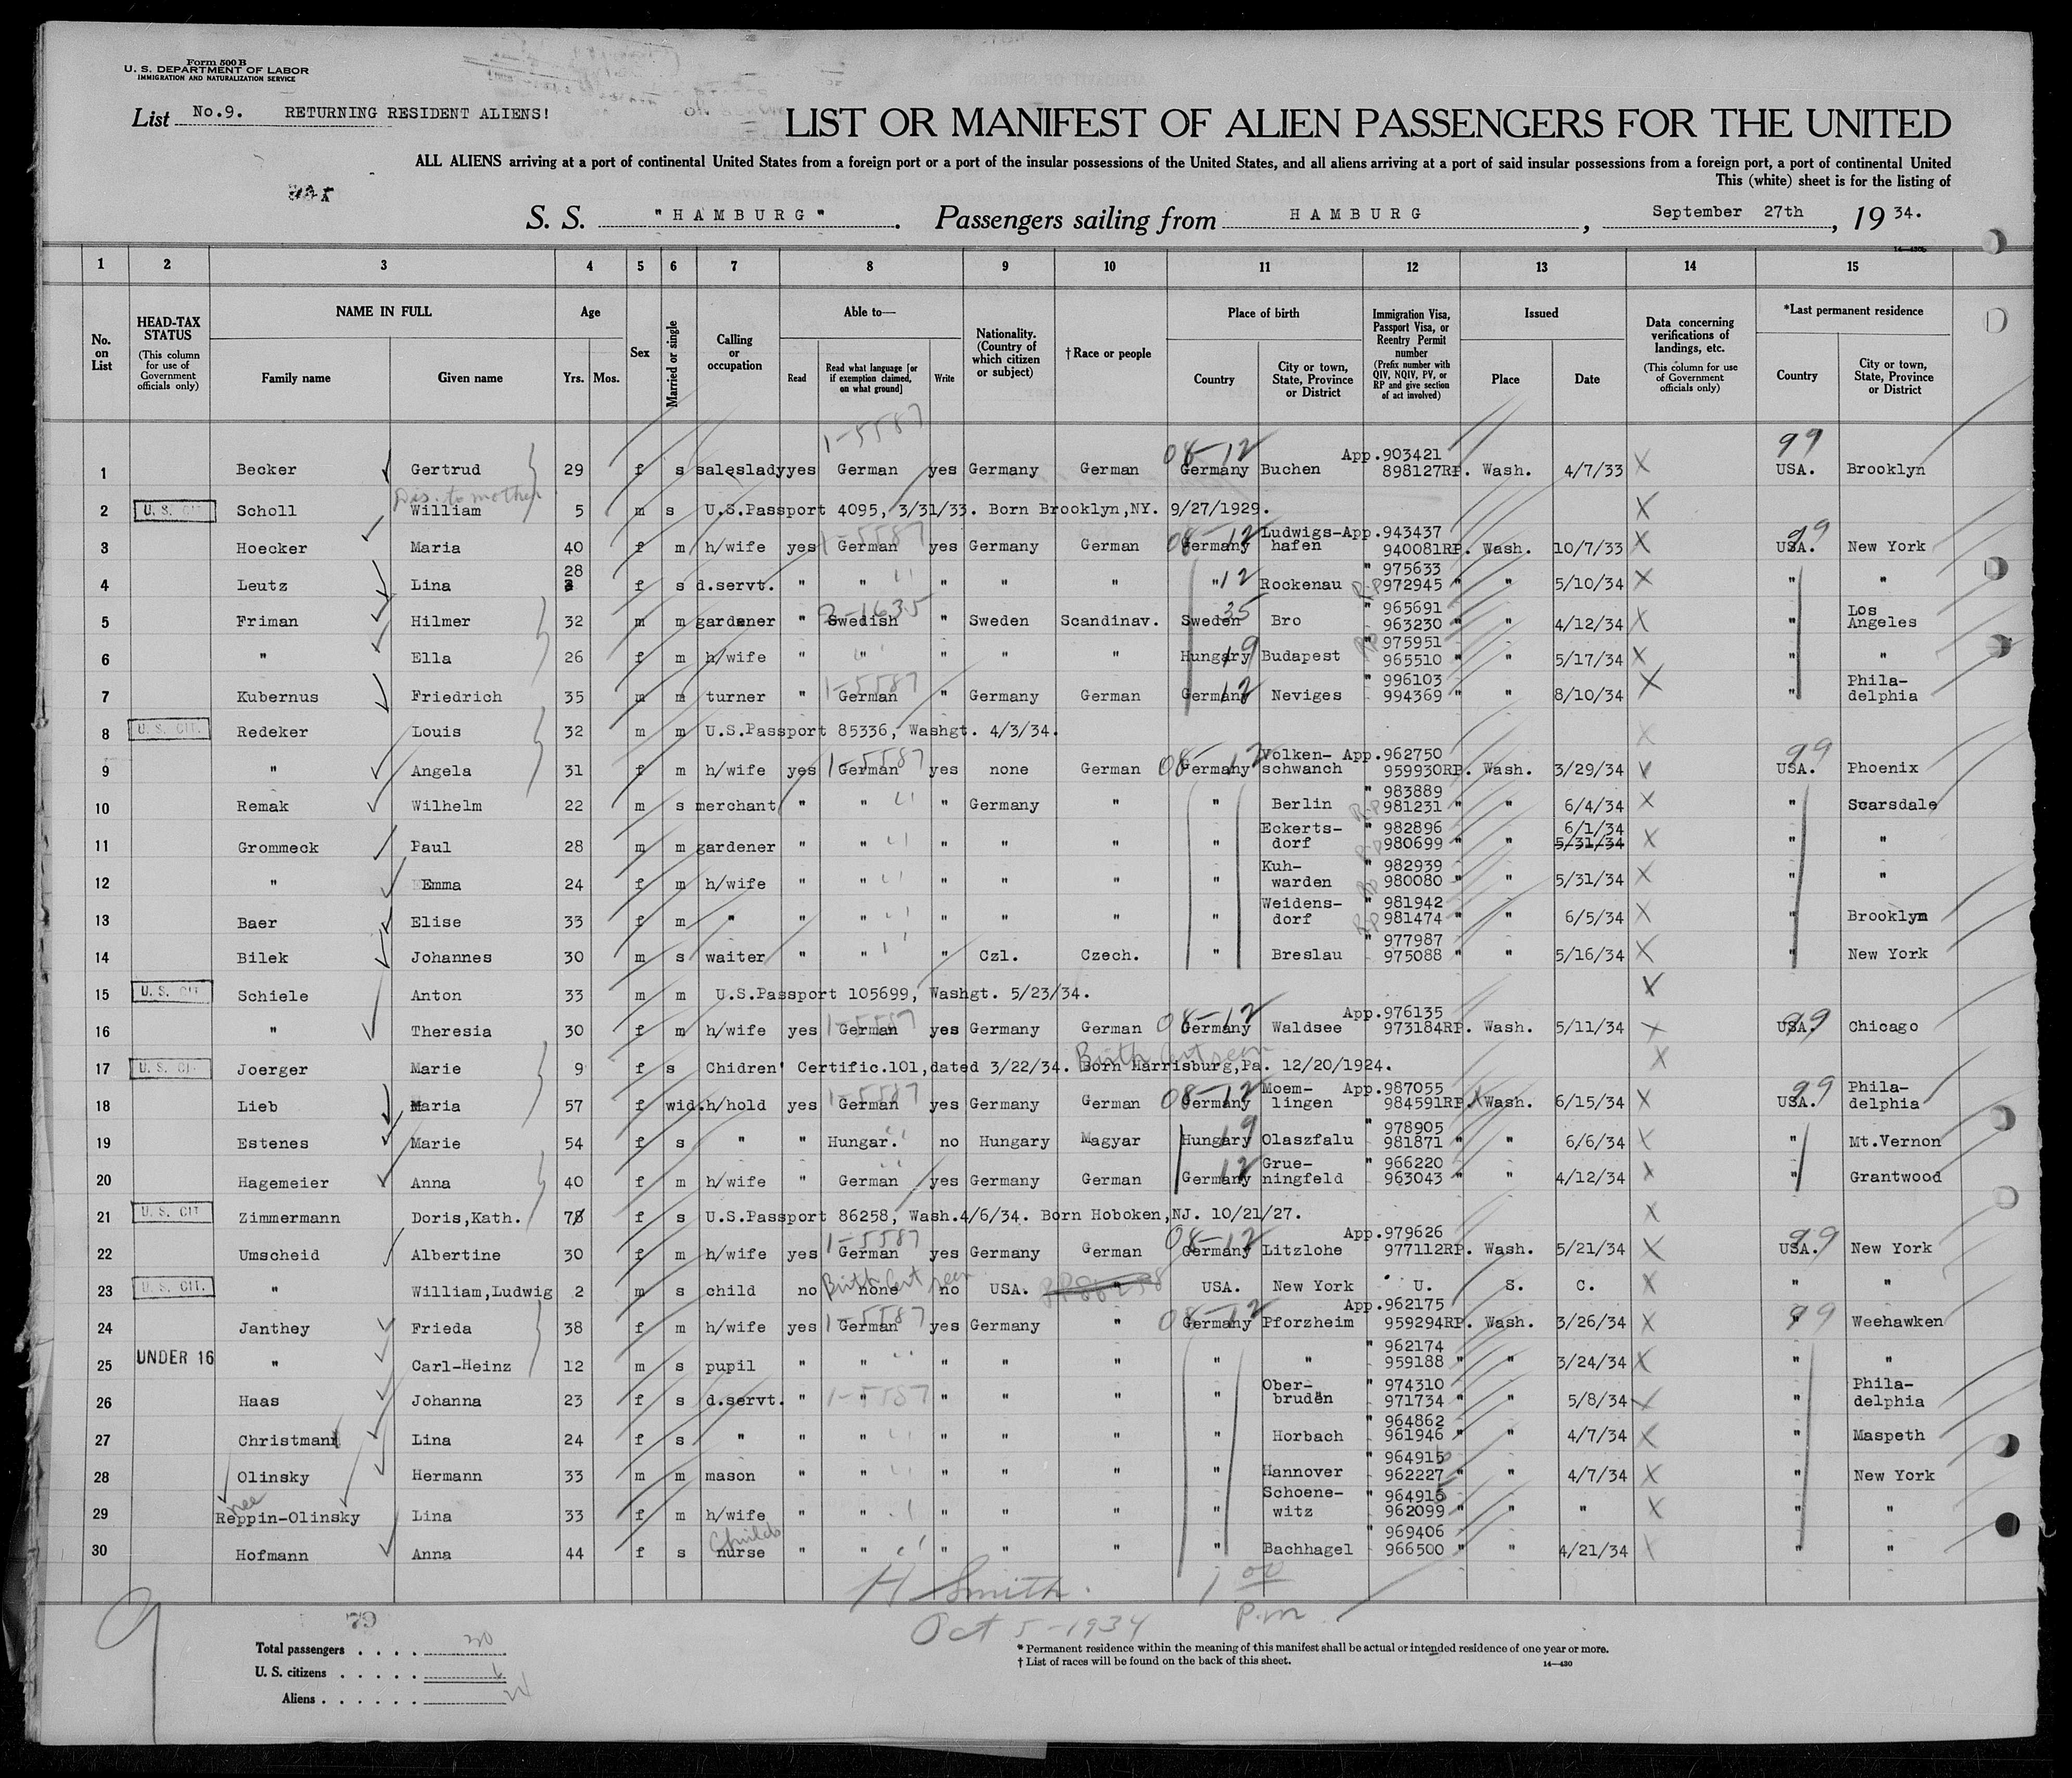 Form 500 B
U. S. DEPARTMENT OF LABOR
IMMIGRATION AND NATURALIZATION SERVICE
List No.9. RETURNING RESIDENT ALIENS!
LIST OR MANIFEST OF ALIEN PASSENGERS FOR THE UNITED
ALL ALIENS arriving at a port of continental United States from a foreign port or a port of the insular possessions of the United States, and all aliens arriving at a port of said insular possessions from a foreign port, a port of continental United
This (white) sheet is for the listing of
S. S. "HAMBURG". Passengers sailing from HAMBURG, September 27th, 1934.
14—430b
1 2 3 4 5 6 7 8 9 10 11 12 13 14 15
No. on List
HEAD-TAX STATUS (This column for use of Government officials only)
NAME IN FULL
Family name Given name
Age
Yrs. Mos.
Sex
Married or single
Calling or occupation
Able to—
Read
Read what language [or if exemption claimed, on what ground]
Write
Nationality. (Country of which citizen or subject)
†Race or people
Place of birth
Country
City or town, State, Province or District
Immigration Visa, Passport Visa, or Reentry Permit number (Prefix number with QIV, NQIV, PV, or RP and give section of act involved)
Issued
Place Date
Data concerning verifications of landings, etc. (This column for use of Government officials only)
*Last permanent residence
Country
City or town, State, Province or District
1-5587 08-12 99
1 Becker Gertrud 29 f s saleslady yes German yes Germany German Germany Buchen App.903421 898127RP. Wash. 4/7/33 X USA. Brooklyn
Dis. to mother
2 U. S. CIT Scholl William 5 m s U.S.Passport 4095, 3/31/33. Born Brooklyn,NY. 9/27/1929. X
3 Hoecker Maria 40 f m h/wife yes 1-5587 German yes Germany German 08-12 Germany Ludwigs-hafen App.943437 940081RP. Wash. 10/7/33 X 99 USA. New York
4 Leutz Lina 28 f s d.servt. " " " " " " 12 Rockenau " 975633 RP 972945 " " 5/10/34 X " "
5 Friman Hilmer 32 m m gardener " 2-1635 Swedish " Sweden Scandinav. Sweden 35 Bro " 965691 963230 " " 4/12/34 X " Los Angeles
6 " Ella 26 f m h/wife " " " " " Hungary 19 Budapest " 975951 RP 965510 " " 5/17/34 X " "
7 Kubernus Friedrich 35 m m turner " 1-5587 German " Germany German Germany 12 Neviges " 996103 994369 " " 8/10/34 X " Phila-delphia
8 U. S. CIT. Redeker Louis 32 m m U.S.Passport 85336, Washgt. 4/3/34. X
9 " Angela 31 f m h/wife yes 1-5587 German yes none German 08-12 Germany Volken-schwanch App.962750 959930RP. Wash. 3/29/34 X 99 USA. Phoenix
10 Remak Wilhelm 22 m s merchant " " " Germany " " Berlin " 983889 RP 981231 " " 6/4/34 X " Scarsdale
11 Grommeck Paul 28 m m gardener " " " " " " Eckerts-dorf " 982896 RP 980699 " " 6/1/34 5/31/34 X " "
12 " Emma 24 f m h/wife " " " " " " Kuh-warden " 982939 RP 980080 " " 5/31/34 X " "
13 Baer Elise 33 f m " " " " " " " Weidens-dorf " 981942 RP 981474 " " 6/5/34 X " Brooklyn
14 Bilek Johannes 30 m s waiter " " " Czl. Czech. " Breslau " 977987 975088 " " 5/16/34 X " New York
15 U. S. CIT Schiele Anton 33 m m U.S.Passport 105699, Washgt. 5/23/34. X
16 " Theresia 30 f m h/wife yes 1-5587 German yes Germany German 08-12 Germany Waldsee App.976135 973184RP. Wash. 5/11/34 X 99 USA. Chicago
Birth Cert seen
17 U. S. CIT Joerger Marie 9 f s Chidren' Certific.101,dated 3/22/34. Born Harrisburg,Pa. 12/20/1924. X
18 Lieb Maria 57 f wid. h/hold yes 1-5587 German yes Germany German 08-12 Germany Moem-lingen App.987055 984591RP. Wash. 6/15/34 X 99 USA. Phila-delphia
19 Estenes Marie 54 f s " " Hungar. no Hungary Magyar Hungary 19 Olaszfalu " 978905 981871 " " 6/6/34 X " Mt.Vernon
20 Hagemeier Anna 40 f m h/wife " German yes Germany German Germany 12 Grue-ningfeld " 966220 963043 " " 4/12/34 X " Grantwood
21 U. S. CIT Zimmermann Doris,Kath. 7 f s U.S.Passport 86258, Wash.4/6/34. Born Hoboken,NJ. 10/21/27. X
22 Umscheid Albertine 30 f m h/wife yes 1-5587 German yes Germany German 08-12 Germany Litzlohe App.979626 977112RP. Wash. 5/21/34 X 99 USA. New York
23 U. S. CIT. " William,Ludwig 2 m s child no Birth Cert seen none no USA. " USA. New York U. S. C. X " "
24 Janthey Frieda 38 f m h/wife yes 1-5587 German yes Germany " 08-12 Germany Pforzheim App.962175 959294RP. Wash. 3/26/34 X 99 " Weehawken
25 UNDER 16 " Carl-Heinz 12 m s pupil " " " " " " " " 962174 959188 " " 3/24/34 X " "
26 Haas Johanna 23 f s d.servt. " 1-5587 " " " " " Ober-brudän " 974310 971734 " " 5/8/34 X " Phila-delphia
27 Christmann Lina 24 f s " " " " " " " Horbach " 964862 961946 " " 4/7/34 X " Maspeth
28 Olinsky Hermann 33 m m mason " " " " " " Hannover " 964915 962227 " " 4/7/34 X " New York
29 nee Reppin-Olinsky Lina 33 f m h/wife " " " " " " Schoene-witz " 964915 962099 " " " X " "
30 Hofmann Anna 44 f s Childs nurse " " " " " " Bachhagel " 969406 966500 " " 4/21/34 X " "
H Smith. 1 00 p.m.
Oct 5-1934
9
79
Total passengers . . . . 30
U. S. citizens . . . . . 6
Aliens . . . . . . 24
* Permanent residence within the meaning of this manifest shall be actual or intended residence of one year or more.
† List of races will be found on the back of this sheet.
14—430